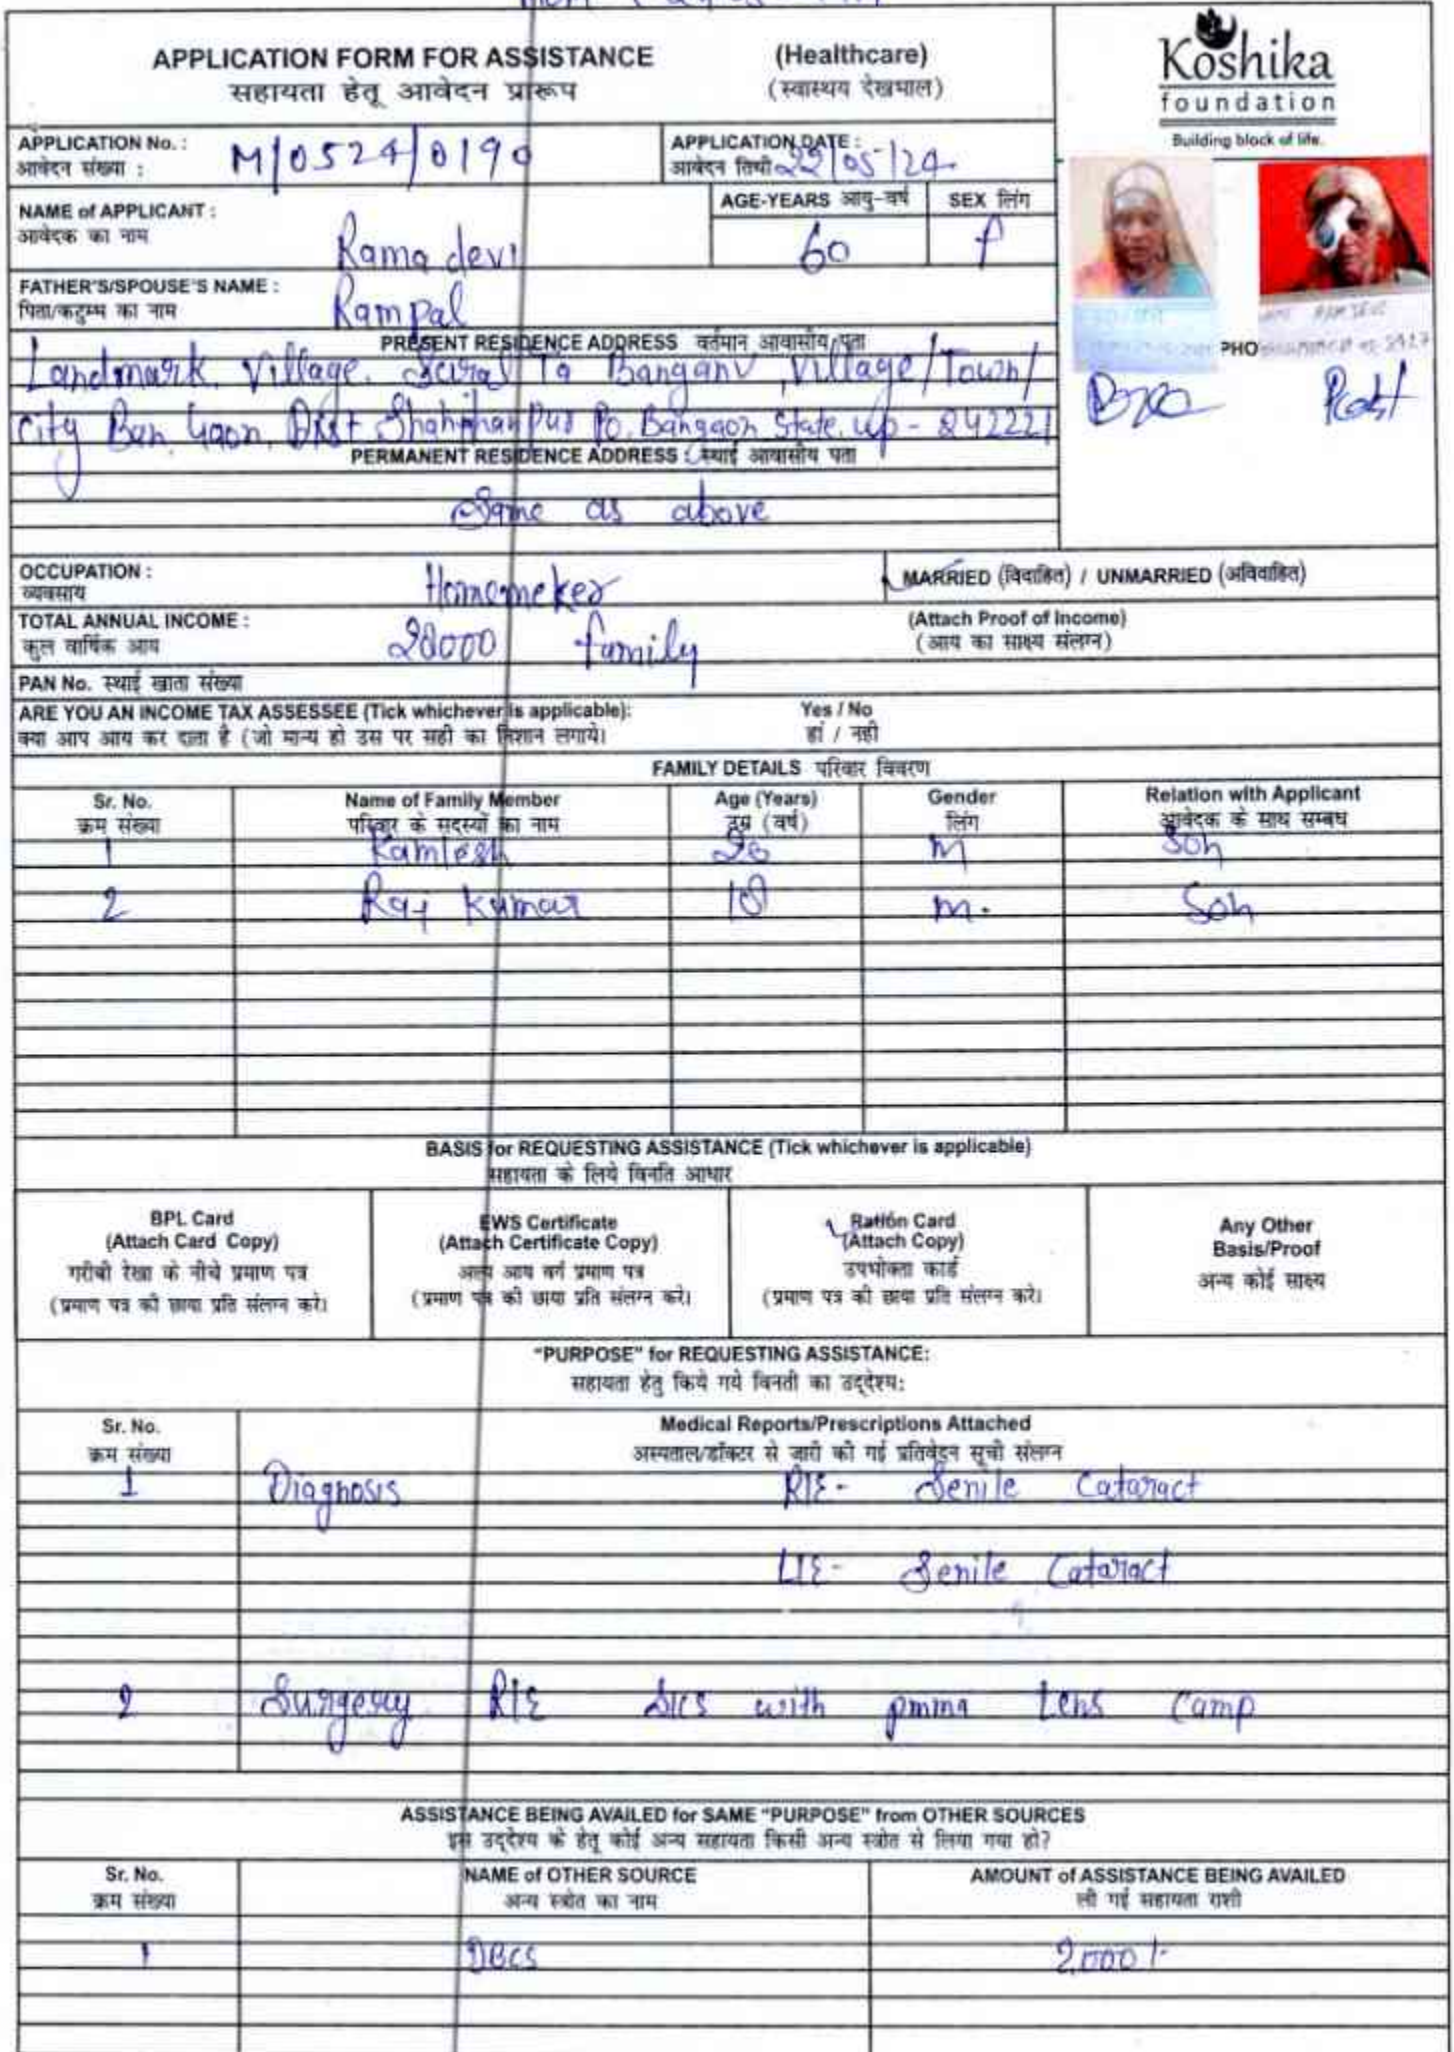 APPLICATION FORM FOR ASSISTANCE (Healthcare)
सहायता हेतू आवेदन प्रारूप (स्वास्थय देखभाल)
Koshika
foundation
Building block of life.
APPLICATION No. : M/0524/0190
आवेदन संख्या :
APPLICATION DATE : 22/05/24
आवेदन तिथी
NAME of APPLICANT : Rama devi
आवेदक का नाम
AGE-YEARS आयु-वर्ष 60
SEX लिंग f
FATHER'S/SPOUSE'S NAME : Rampal
पिता/कटुम्ब का नाम
PRESENT RESIDENCE ADDRESS वर्तमान आवासीय पता
Landmark. Village. Ta Banganv, Village/Town/
City Ban Gaon, Dist Shahjhanpur Po. Bangaon State. up - 242221
PERMANENT RESIDENCE ADDRESS : स्थाई आवासीय पता
Same as above
PHO
Post
OCCUPATION : Homemeker
व्यवसाय
MARRIED (विवाहित) / UNMARRIED (अविवाहित)
TOTAL ANNUAL INCOME : 20000 family
कुल वार्षिक आय
(Attach Proof of Income)
(आय का साक्ष्य संलग्न)
PAN No. स्थाई खाता संख्या
ARE YOU AN INCOME TAX ASSESSEE (Tick whichever is applicable): Yes / No
क्या आप आय कर दाता है (जो मान्य हो उस पर सही का निशान लगाये। हां / नही
FAMILY DETAILS परिवार विवरण
Sr. No. Name of Family Member Age (Years) Gender Relation with Applicant
क्रम संख्या परिवार के सदस्यों का नाम उम्र (वर्ष) लिंग आवेदक के साथ सम्बध
1 Kamlesh M Son
2 Raj Kumar M. Son
BASIS for REQUESTING ASSISTANCE (Tick whichever is applicable)
सहायता के लिये विनति आधार
BPL Card
(Attach Card Copy)
गरीबी रेखा के नीचे प्रमाण पत्र
(प्रमाण पत्र की छाया प्रति संलग्न करे।
EWS Certificate
(Attach Certificate Copy)
अल्प आय वर्ग प्रमाण पत्र
(प्रमाण पत्र की छाया प्रति संलग्न करे।
Ration Card
(Attach Copy)
उपभोक्ता कार्ड
(प्रमाण पत्र की छाया प्रति संलग्न करे।
Any Other
Basis/Proof
अन्य कोई साक्ष्य
"PURPOSE" for REQUESTING ASSISTANCE:
सहायता हेतु किये गये विनती का उद्देश्य:
Sr. No. Medical Reports/Prescriptions Attached
क्रम संख्या अस्पताल/डॉक्टर से जारी की गई प्रतिवेदन सूची संलग्न
1 Diagnosis R/E- Senile Cataract
L/E- Senile Cataract
2 Surgery R/E Sics with pmma Lens Camp
ASSISTANCE BEING AVAILED for SAME "PURPOSE" from OTHER SOURCES
इस उद्देश्य के हेतू कोई अन्य सहायता किसी अन्य स्त्रोत से लिया गया हो?
Sr. No. NAME of OTHER SOURCE AMOUNT of ASSISTANCE BEING AVAILED
क्रम संख्या अन्य स्त्रोत का नाम ली गई सहायता राशी
1 DBCS 2000/-